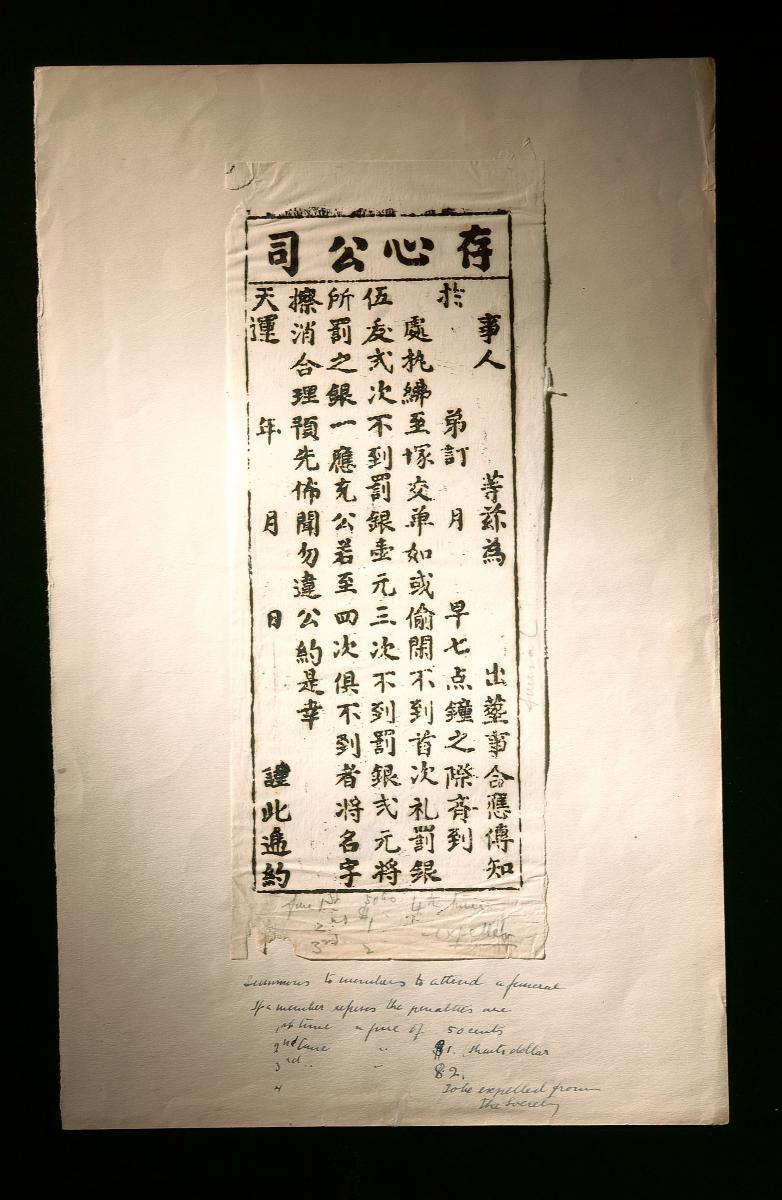 存心公司
事人　等茲為　出塟事合應傳知
於　弟訂　月　早七点鐘之際齊到
處执綍至塚交单如或偷閑不到首次礼罰銀
伍友弍次不到罰銀壹元三次不到罰銀弍元將
所罰之銀一應充公若至四次俱不到者将名字
擦消合理預先佈聞勿違公約是幸
天運　年　月　日　謹此通約
fine 1st 50cts 4th time
2nd $1 "
3rd 2
Summons to members to attend a funeral
If a member refuses the penalties are
1st time a fine of 50 cents
2nd time " $1. Straits dollar
3rd " " $2.
4 To be expelled from
the Society